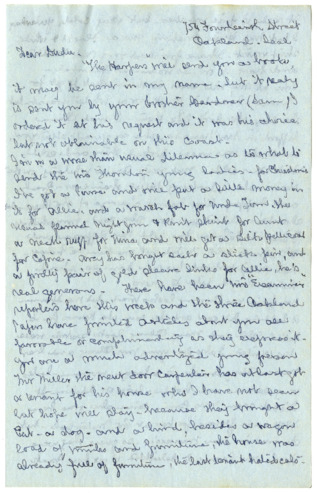 154 Fourteenth Street
Oakland. Cal
Dear Dudu.
"The Harpers" will send you a book
it may be sent in my name. but it really
is sent you by your brother Gardner (Sam)
ordered it at his request and it was his choice
but not obtainable on this Coast.
I'm in a more than usual dilemma as to what to
send the Thornton young ladies - for Christmas
I've got a purse and will put a little money in
it for Allie. and a watch fob for Uncle Tom the
usual flannel nightgown & knit skirt for Aunt
a neck ruff for and will get a petticoat
for May has bought each a pair, and
a pretty pair of gold sleeve links for Allie, he's
real generous - There have been two Examiner
reporters here this week and the three Oakland
papers have printed articles about you all
favorable or complimentary as they express it.
You are a much advertised young person
Mr Miller the next door Carpenter has at last got
a tenant for his house who I have not seen
but hope will stay - because they brought a
Cat - a dog - and a bird, besides a wagon
load of trunks and furniture, the house was
already full of furniture, the last tenant hated cats.